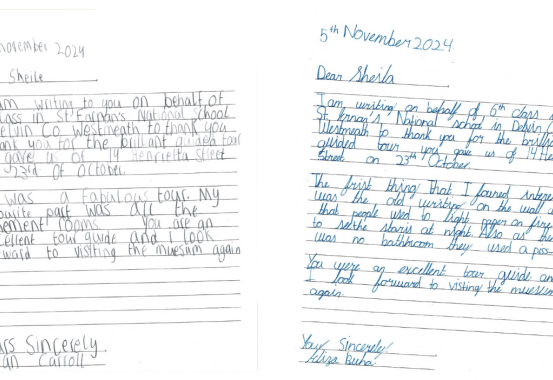 November 2024
Sheila
am writing to you on behalf of
lass in St Earnan's National School
elvin Co. Westmeath to thank you
ank you for the brillant guided tour
gave us of 14 Henrietta Street
23rd of October.
was a fabulous tour. My
ourite part was all the
nement rooms. You are an
cellent tour guide and I look
ward to visiting the muesum again
ars Sincerely
an Carroll
5th November 2024
Dear Sheila
I am writing on behalf of 6th class
St. Ernan's National school in Delvin
Westmeath to thank you for the brillia
guided tour you gave us of 14 He
Street on 23rd October.
The first thing that I found
was the old writing on the wall
that people used to light paper on fire
to see the stairs at night also as the
was no bathroom they used a
You were an excellent tour guide an
I look forward to visting the
again.
Sincerely